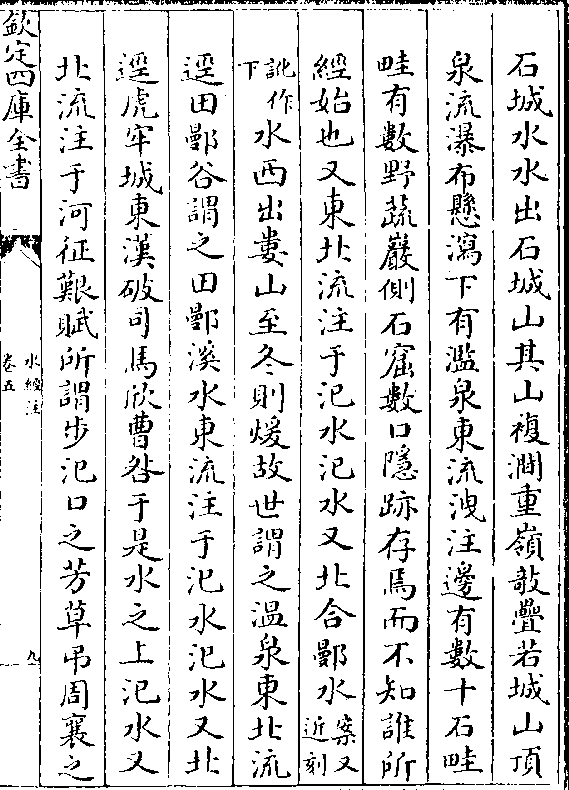 石城水水出石城山其山複澗重嶺敧疊若城山頂
泉流瀑布懸瀉下有濫泉東流洩注邊有數十石畦
畦有數野蔬巖側石窟數口隱跡存焉而不知誰所
經始也又東北流注于汜水汜水又北合鄤水案又近刻
訛作下水西出婁山至冬則煖故世謂之溫泉東北流
逕田鄤谷謂之田鄤溪水東流注于汜水汜水又北
逕虎牢城東漢破司馬欣曹咎于是水之上汜水又
北流注于河征艱賦所謂步汜口之芳草弔周襄之
欽定四庫全書
水經注
卷五
九